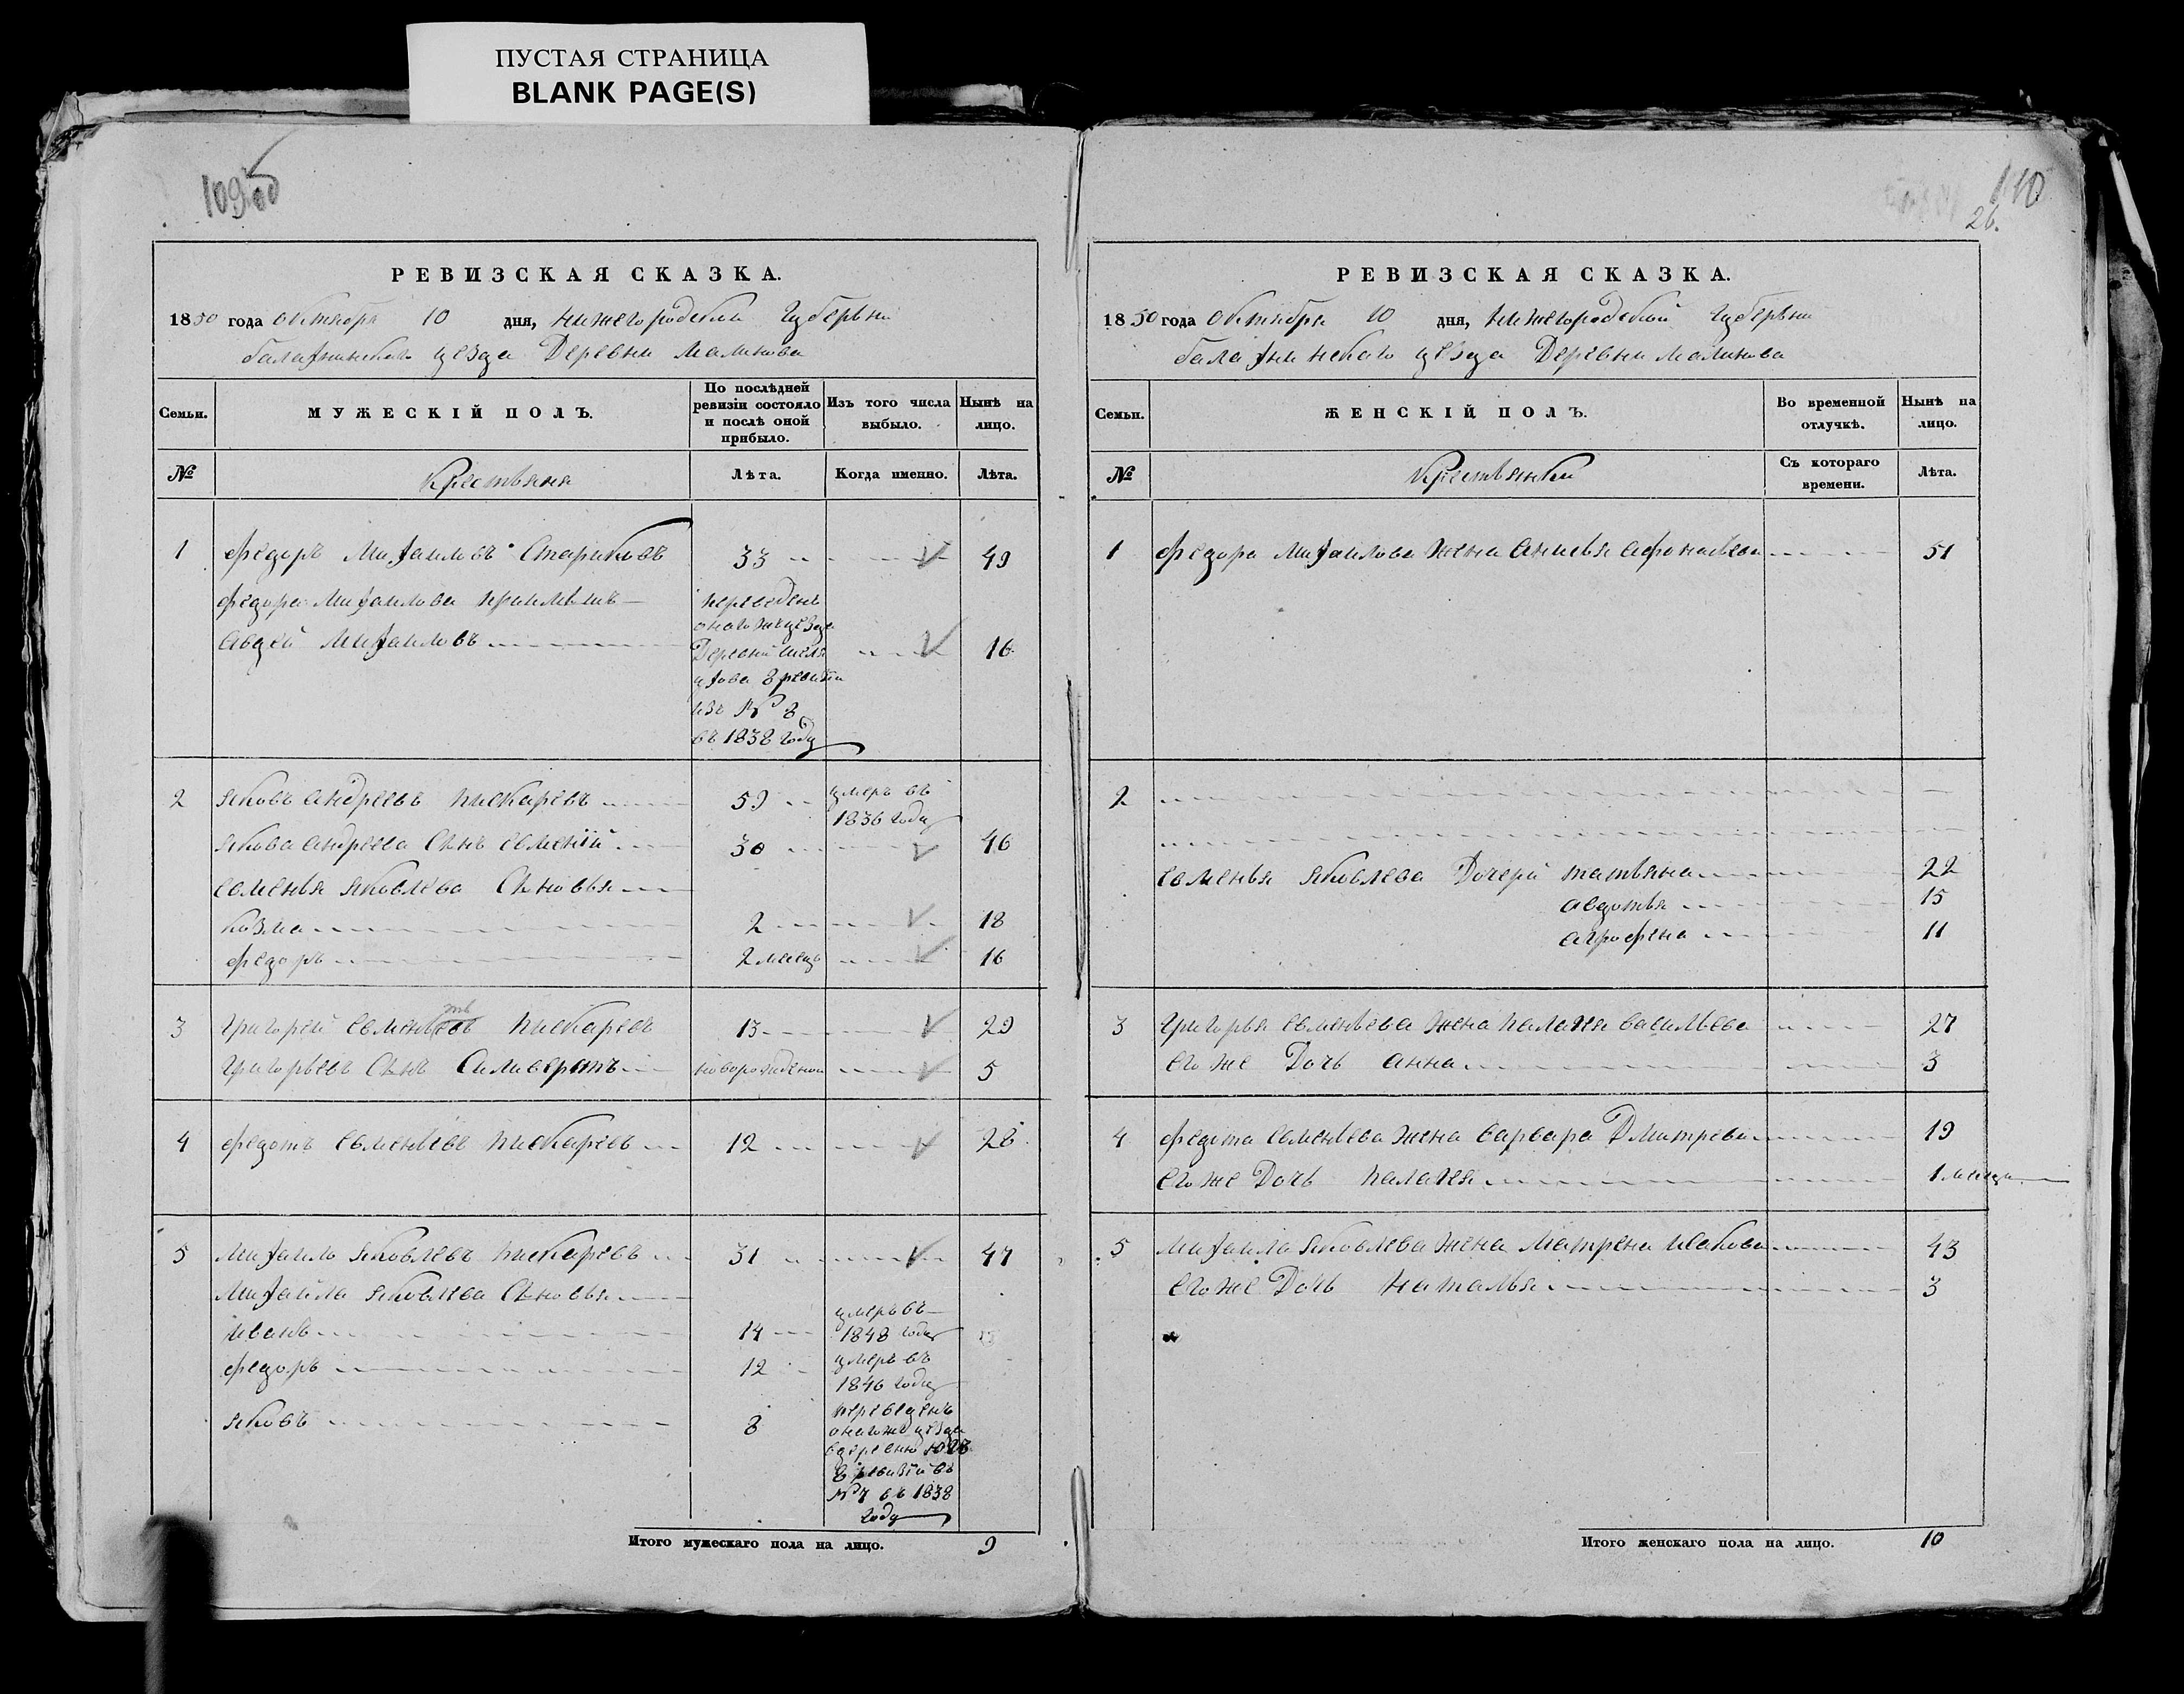 ПУСТАЯ СТРАНИЦА
BLANK PAGE(S)
109об
РЕВИЗСКАЯ СКАЗКА.
1850 года октября 10 дня, Нижегородской губернии
балахнинскаго уезда Деревни Малинова
Семьи.
МУЖЕСКІЙ ПОЛЪ.
По послѣдней ревизіи состояло и послѣ оной прибыло.
Изъ того числа выбыло.
Нынѣ на лицо.
№
Крестьяня
Лѣта.
Когда именно.
Лѣта.
1 Федоръ Михаиловъ Стариковъ 33 49
Федора Михаилова приимышъ
авдей Михаиловъ 16
переведенъ
оного же уезда
Деревни
8 ревизіи
изъ № 8
въ 1838 году
2 яковъ андреевъ пискаревъ 59 умеръ въ
1836 году
якова андреева сынъ евменій 30 46
евменья яковлева сыновья
козма 2 18
федоръ 2 месец 16
3 григорей евменьевъ пискаревъ 13 29
григорьевъ сынъ Силиверстъ новорожденой 5
4 федотъ евменьевъ пискаревъ 12 28
5 Михаило яковлевъ пискаревъ 31 47
Михайла яковлева сыновья
иванъ 14 умеръ въ
1848 году
федоръ 12 умеръ въ
1846 году
яковъ 8 переведенъ
оногоже уезда
вдеревню
8 ревизіи въ
№ 7 въ 1838
году
Итого мужескаго пола на лицо. 9
110
26.
РЕВИЗСКАЯ СКАЗКА.
1850 года Октября 10 дня, Нижегородской губернии
балахнинскаго уезда Деревни Малинова
Семьи.
ЖЕНСКІЙ ПОЛЪ.
Во временной отлучкѣ.
Нынѣ на лицо.
№
Крестьянки
Съ котораго времени.
Лѣта.
1 Федора Михаилова жена анисья афонасьева 51
2
евменья яковлева Дочери татьяна 22
авдотья 15
аграфена 11
3 григорья евменьева жена палагея васильева 27
его же Дочь анна 3
4 федота евменьева жена варвара Дмитрева 19
его же Дочь палагея 1 месец
5 михаила яковлева жена Матрена иванова 43
его же Дочь наталья 3
Итого женскаго пола на лицо. 10